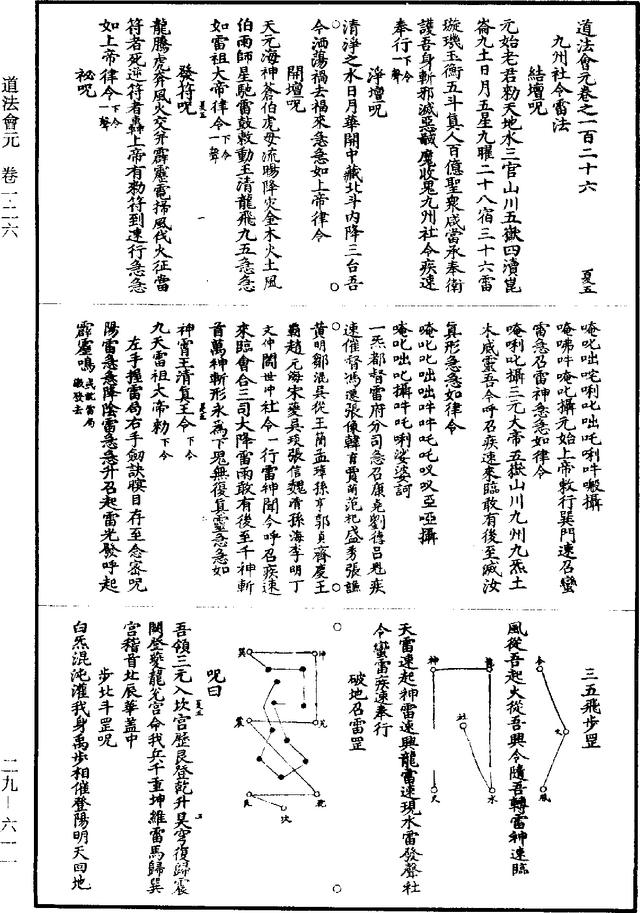 道法會元卷之一百二十六
夏五
九州社令雷法
結壇呪
元始老君勑天地水三官山川五嶽四瀆崑
崙九土日月五星九曜二十八宿三十六雷
璇璣玉衡五斗真人百億聖衆咸當承奉衛
護吾身斬邪滅惡馘魔收鬼九州社令疾速
奉行一聲
淨壇呪
清淨之水日月華開中藏北斗內降三台吾
今洒蕩禍去福來急急如上帝律令
開壇呪
天元海神蒼伯虎毋流暘降灾金木火土風
伯雨師星馳雷鼓敕動王清龍飛九五急急
如雷祖大帝律令下令一聲
發符呪
龍騰虎奔風火交并霹靂電掃風伐火征當
符者死逆符者轟上帝有勑符到速行急急
如上帝律令下令一聲
祕呪
唵叱咄咤唎叱咄吒唎吽囕攝
唵咈吽唵叱攝元始上帝敕行巽門速召蠻
雷急召雷神急急如律令
唵唎叱攝三元大帝五嶽山川九州九炁土
木威靈吾今呼召疾速來臨敢有後至馘汝
真形急急如律令
唵叱叱咄咄吽吽吒吒㕚㕚亞啞攝
唵叱咄叱攝吽吒唎娑婆訶
一炁都督雷府分司急召康堯劉德呂魁疾
速催督馮遷張傑韓育賈蘭范杞盛秀張讌
黄明鄒混吳從王簡孟璋孫亨郭貞齊慶王
霸趙元海宋變吳琰張信魏清孫海李明丁
文仲闗世冲社令一行雷神聞今呼召疾速
來臨會合三司大降雷雨敢有後至千神斬
首萬神斬形永為下鬼無復真靈急急如
神霄王清真王令下令
九天雷祖大帝勑下令
左手握雷局右手劍訣瞑目存至念密呪
陽雷急急降陰雷急急升召起雷光發呼起
霹靂鳴
三五飛步罡
風從吾起火從吾興令隨吾轉雷神速臨
神 社 水 天 火 風
天雷速起神雷速興龍雷速現水雷發聲社
令蠻雷疾速奉行
破地召雷罡
巽 坤 震 兌 艮 坎 乾
呪曰
吾領三元入坎宮歷艮登乾升昊穹復歸震
闕登夔龍兌宮命我兵千重坤維雷馬歸巽
宮稽首北辰華蓋中
步北斗罡呪
白炁混沌灌我身禹步相催登陽明天回地
道法會元 卷一二六
二九—六一一